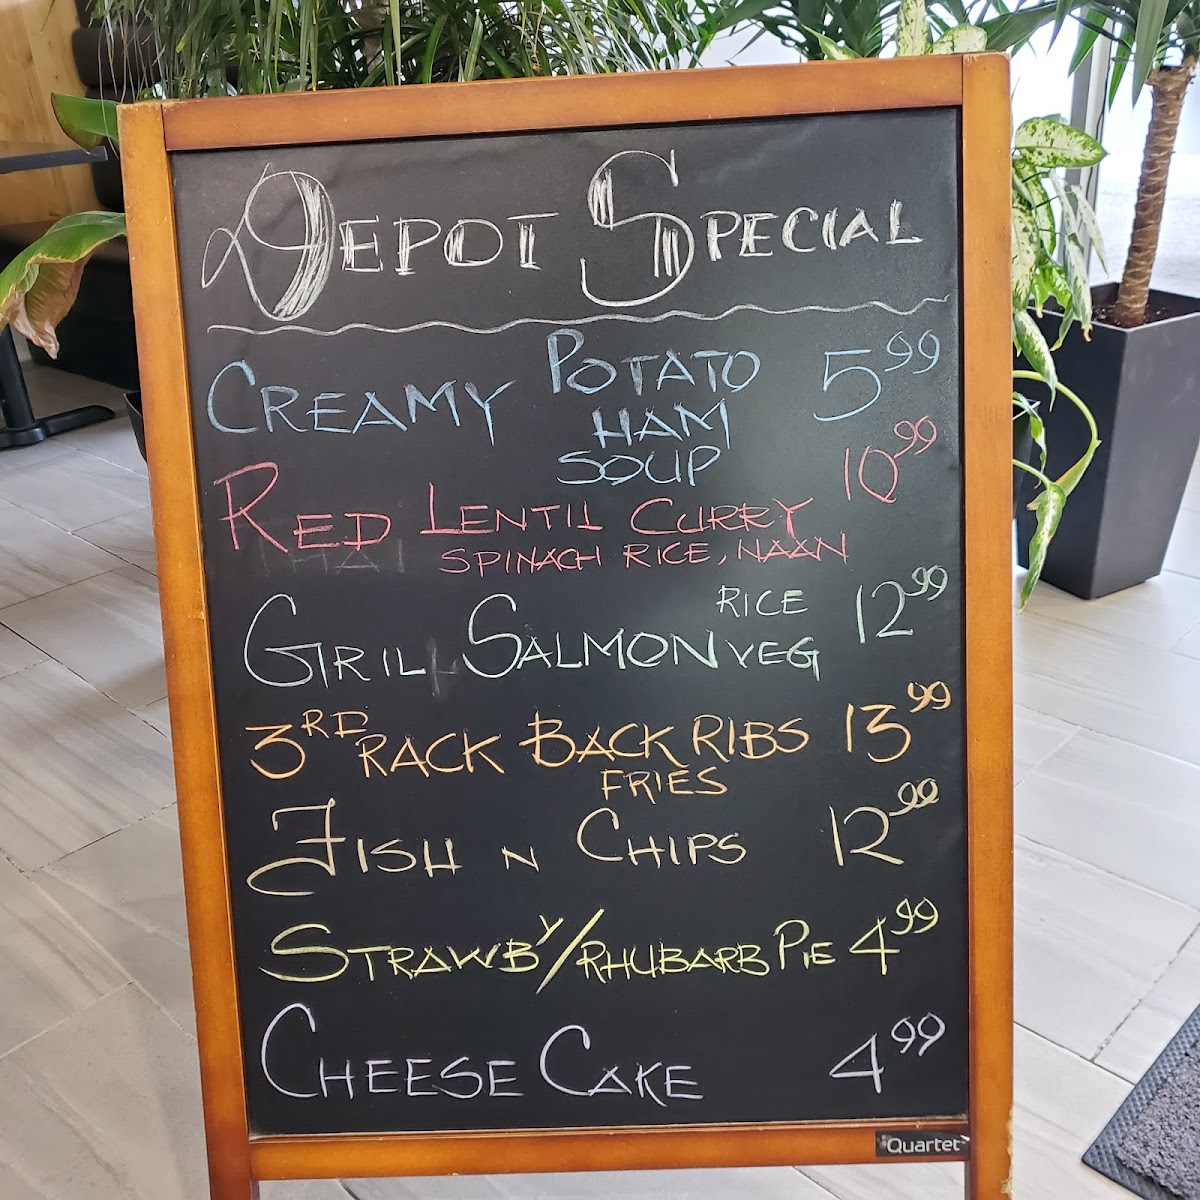 DEPOT SPECIAL
CREAMY POTATO 5.99
HAM
SOUP
RED LENTIL CURRY 10.99
SPINACH RICE, NAAN
RICE
GRILL SALMON VEG 12.99
3RD RACK BACK RIBS 13.99
FRIES
FISH N CHIPS 12.99
STRAWBY/RHUBARB PIE 4.99
CHEESE CAKE 4.99
Quartet